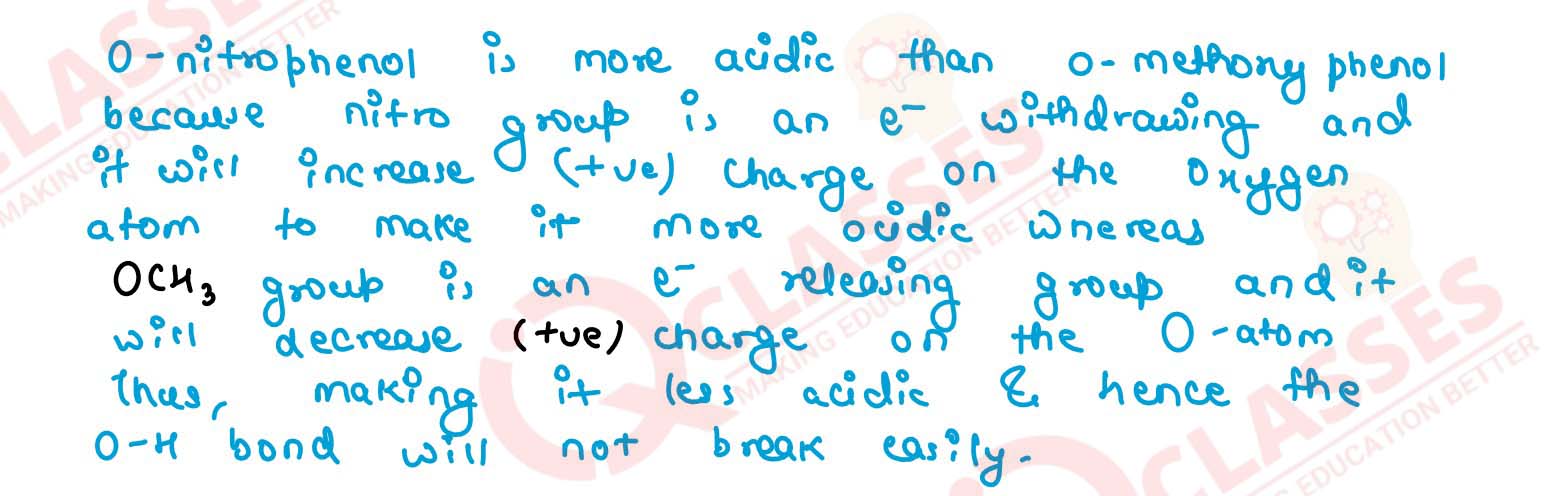 O-nitrophenol is more acidic than o-methoxy phenol
because nitro group is an e⁻ withdrawing and
it will increase (+ve) charge on the oxygen
atom to make it more acidic whereas
OCH₃ group is an e⁻ releasing group and it
will decrease (+ve) charge on the O-atom
thus, making it less acidic & hence the
O-H bond will not break easily.
CLASSES
MAKING EDUCATION BETTER
CLASSES
MAKING EDUCATION BETTER
CLASSES
EDUCATION BETTER